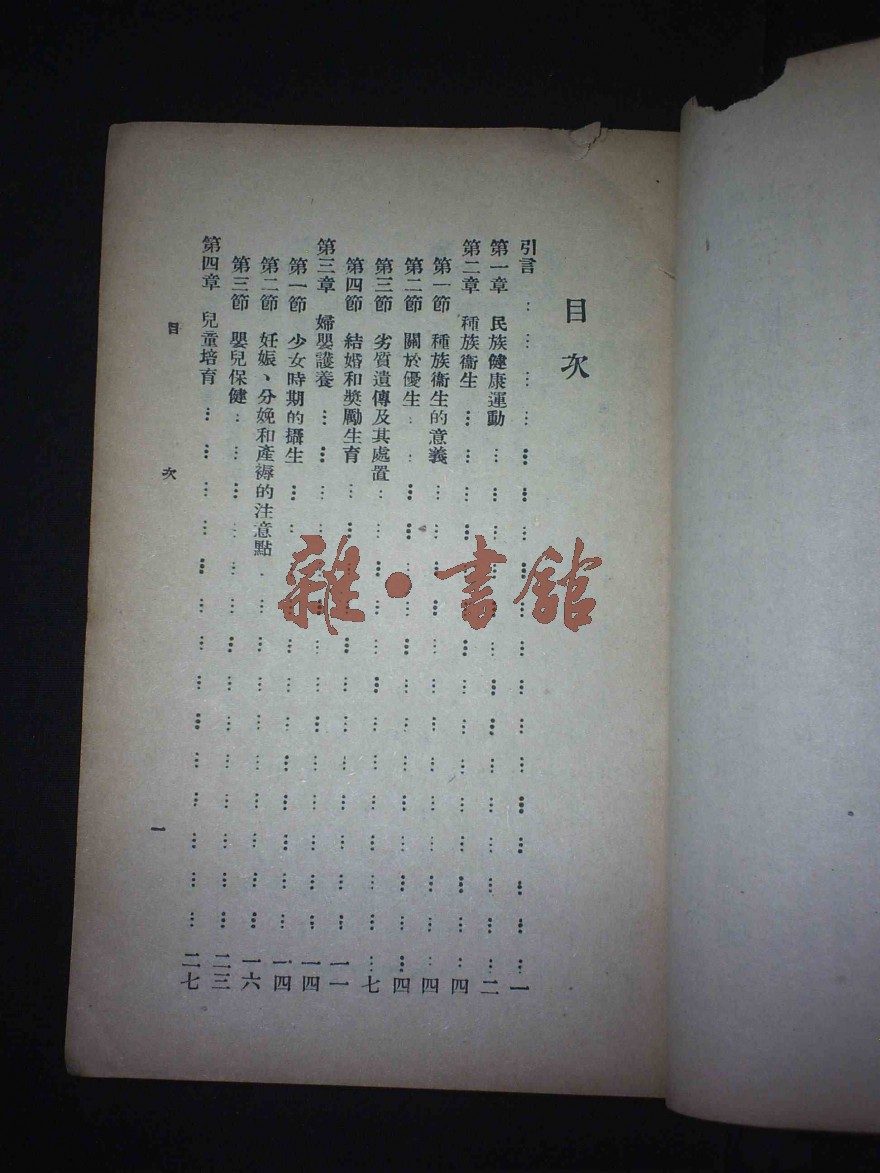 目次
引言……一
第一章 民族健康運動……二
第二章 種族衞生……四
第一節 種族衞生的意義……四
第二節 關於優生……四
第三節 劣質遺傳及其處置……七
第四節 結婚和獎勵生育……一一
第三章 婦嬰護養……一四
第一節 少女時期的攝生……一四
第二節 妊娠、分娩和產褥的注意點……一六
第三節 嬰兒保健……二三
第四章 兒童培育……二七
目次
一
雜·書館